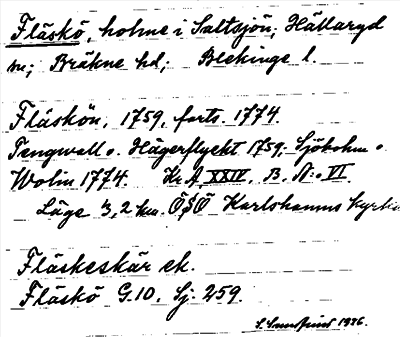 Fläskö, holme i Saltsjön; Hällaryd
sn; Bräkne hd; Blekinge l.
Fläskön, 1759, forts. 1774.
Tengwall o. Hägerflycht 1759; Sjöbohm o.
Wolin 1774. Kr. A. XXIV. B. N:o VI.
Läge 3,2 km. ÖSÖ Karlshamns kyrka
Fläskeskär ek.
Fläskö G.10. Sj: 259.
1936.